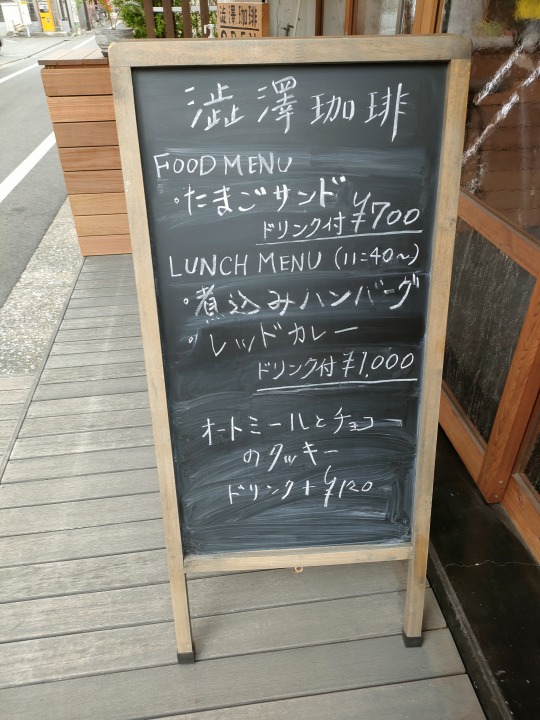 澁澤珈琲
OPEN
澁澤珈琲
FOOD MENU
・たまごサンド
ドリンク付 ¥700
LUNCH MENU (11:40〜)
・煮込みハンバーグ
・レッドカレー
ドリンク付 ¥1,000
オートミールとチョコ
のクッキー
ドリンク+¥120